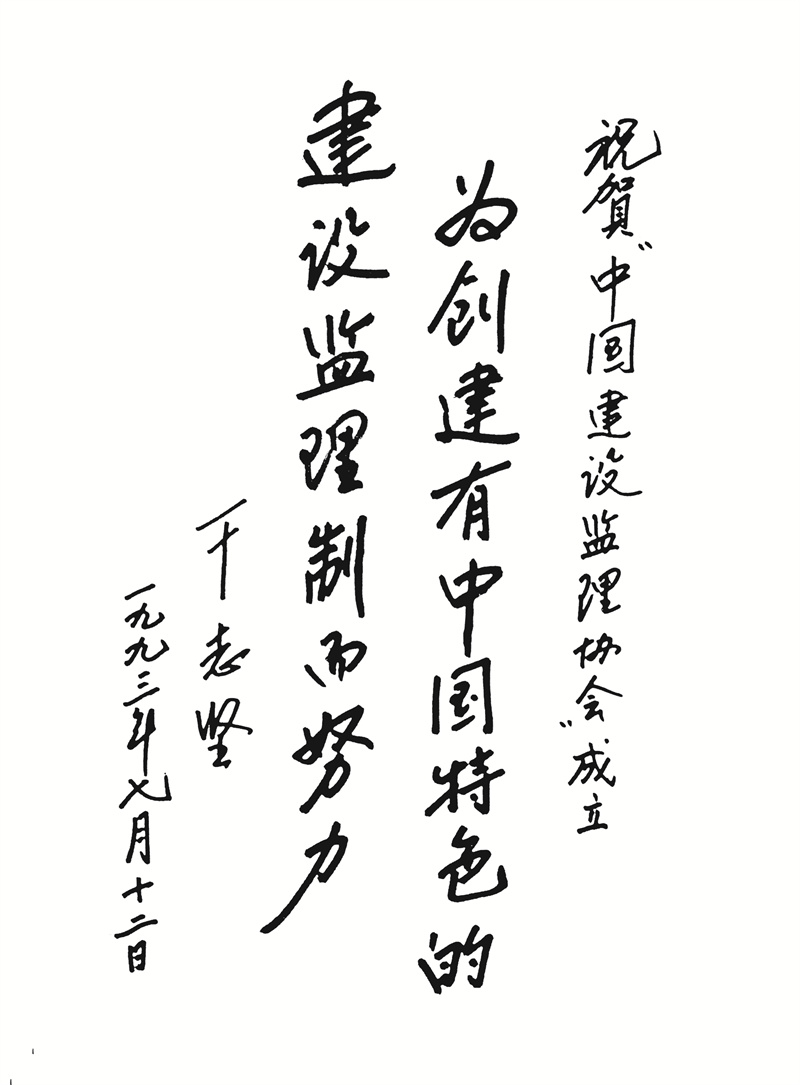 祝賀“中国建设监理协会”成立
为创建有中国特色的
建设监理制而努力
干志坚
一九九三年七月十二日